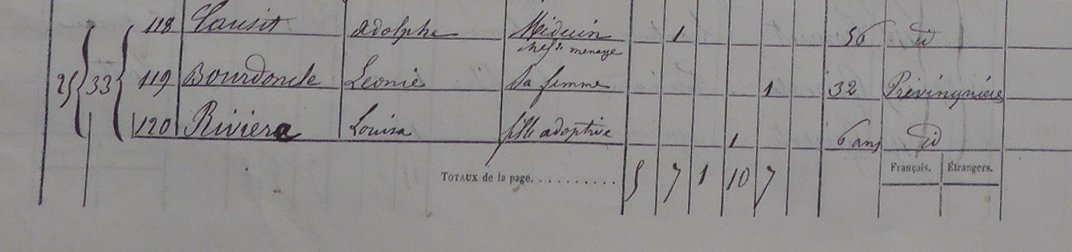 118 Adolphe Médecin 1 56 id
chef de ménage
25 33 119 Bourdoncle Léonie Sa femme 1 32 Prévinquières
120 Rivière Louisa fille adoptive 1 6 ans id
TOTAUX de la page. . . . . . . . . . . 5 7 1 10 7 Français. Étrangers.